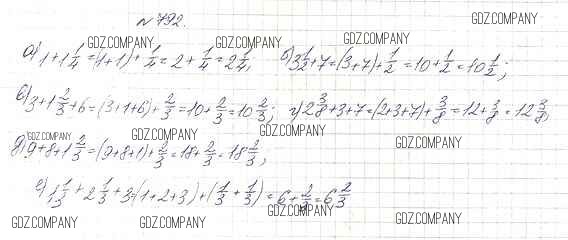 № 792.
GDZ.COMPANY
GDZ.COMPANY GDZ.COMPANY GDZ.COMPANY
а) 1+1 1/4 = (1+1)+ 1/4 = 2 + 1/4 = 2 1/4; б) 3 1/2 + 7 = (3+7)+ 1/2 = 10 + 1/2 = 10 1/2;
в) 3+1 2/3 + 6 = (3+1+6)+ 2/3 = 10 + 2/3 = 10 2/3; г) 2 3/8 +3+7 = (2+3+7)+ 3/8 = 12 + 3/8 = 12 3/8;
GDZ.COMPANY GDZ.COMPANY GDZ.COMPANY GDZ.COMPANY
д) 9+8+1 2/3 = (9+8+1)+ 2/3 = 18 + 2/3 = 18 2/3;
е) 1 1/3 + 2 1/3 + 3 = (1+2+3)+( 1/3 + 1/3 ) = 6 + 2/3 = 6 2/3
GDZ.COMPANY GDZ.COMPANY GDZ.COMPANY GDZ.COMPANY